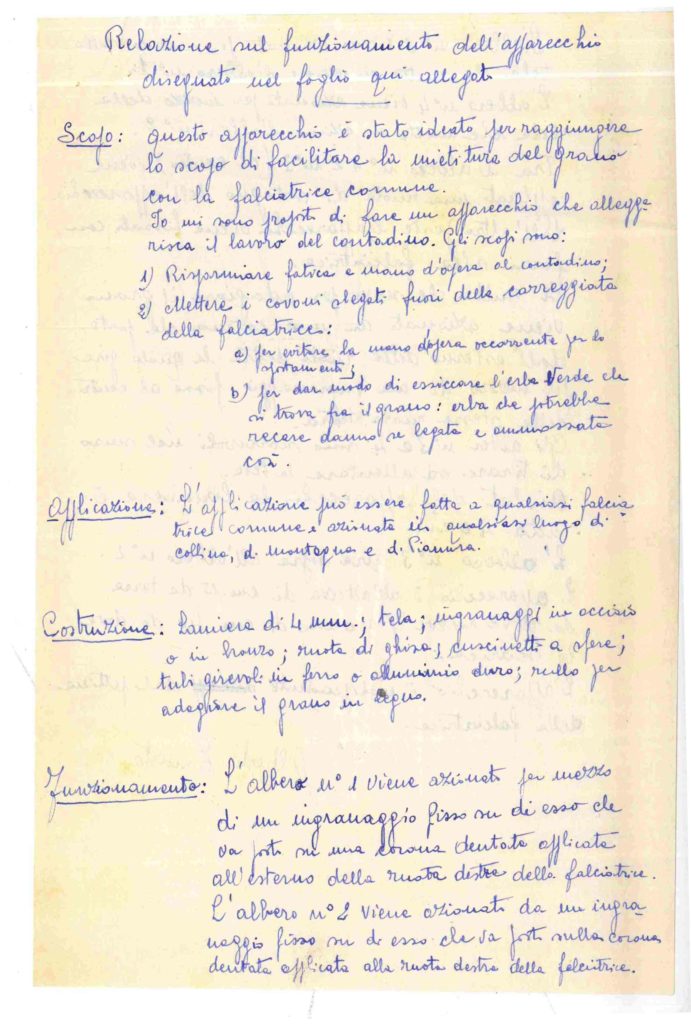 Relazione sul funzionamento dell'apparecchio
disegnato nel foglio qui allegato
Scopo: Questo apparecchio è stato ideato per raggiungere
lo scopo di facilitare la mietitura del grano
con la falciatrice comune.
Io mi sono proposto di fare un apparecchio che allegge-
risca il lavoro del contadino. Gli scopi sono:
1) Risparmiare fatica e mano d'opera al contadino;
2) Mettere i covoni slegati fuori della carreggiata
della falciatrice:
a) per evitare la mano d'opera occorrente per lo
spostamento;
b) per dar modo di essiccare l'erba verde che
si trova fra il grano: erba che potrebbe
recare danno se legata e ammassata
così.
Applicazione: L'applicazione può essere fatta a qualsiasi falcia-
trice comune e azionata in qualsiasi luogo di
collina, di montagna e di Pianura.
Costruzione: Lamiera di 4 mm.; tela; ingranaggi in acciaio
o in bronzo; ruota di ghisa; cuscinetti a sfere;
tubi girevoli in ferro o alluminio duro; rullo per
adagiare il grano in legno.
Funzionamento: L'albero n° 1 viene azionato per mezzo
di un ingranaggio fisso su di esso che
va posto su una corona dentata applicata
all'esterno della ruota destra della falciatrice.
L'albero n° 2 viene azionato da un ingra-
naggio fisso su di esso che va posto sulla corona
dentata applicata alla ruota destra della falciatrice.